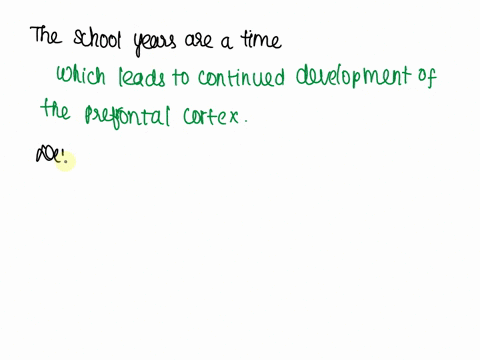 The school years are a time
which leads to continued development of
the prefontal cortex.